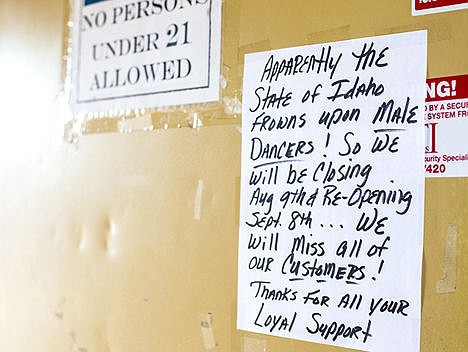 NO PERSONS
UNDER 21
ALLOWED
Apparently the
State of Idaho
frowns upon Male
Dancers! So we
will be closing
Aug 9th & Re-Opening
Sept. 8th... We
will miss all of
our Customers!
Thanks for all your
Loyal Support
NG!
BY A SECUR
SYSTEM FRO
I
curity Speciali
7420